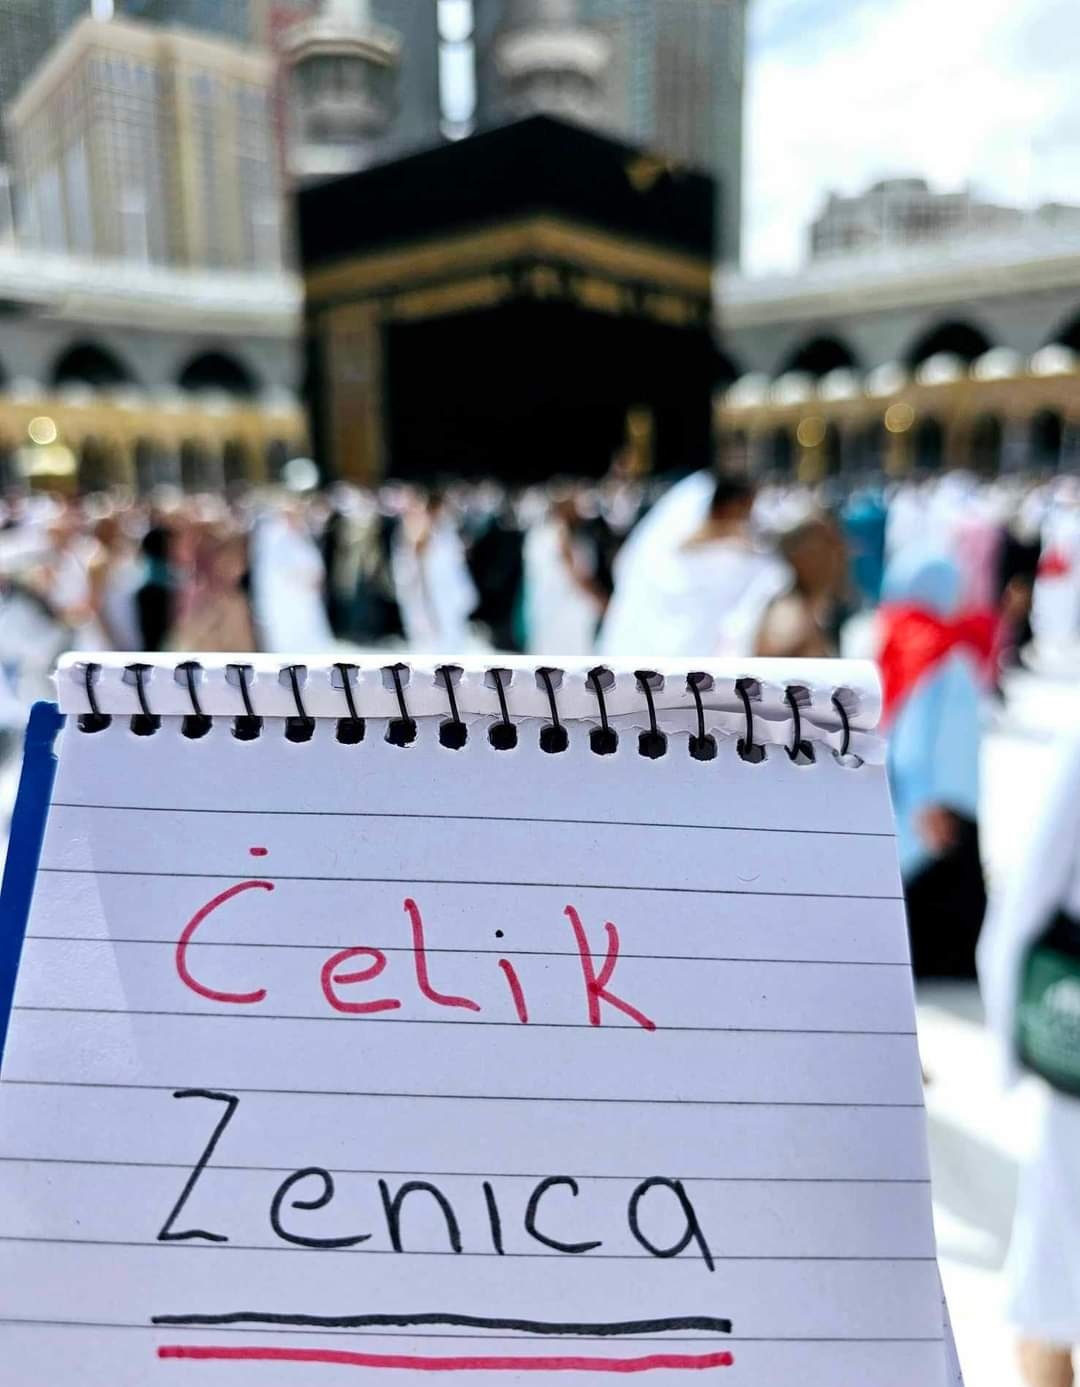 Ċelik
Zenica